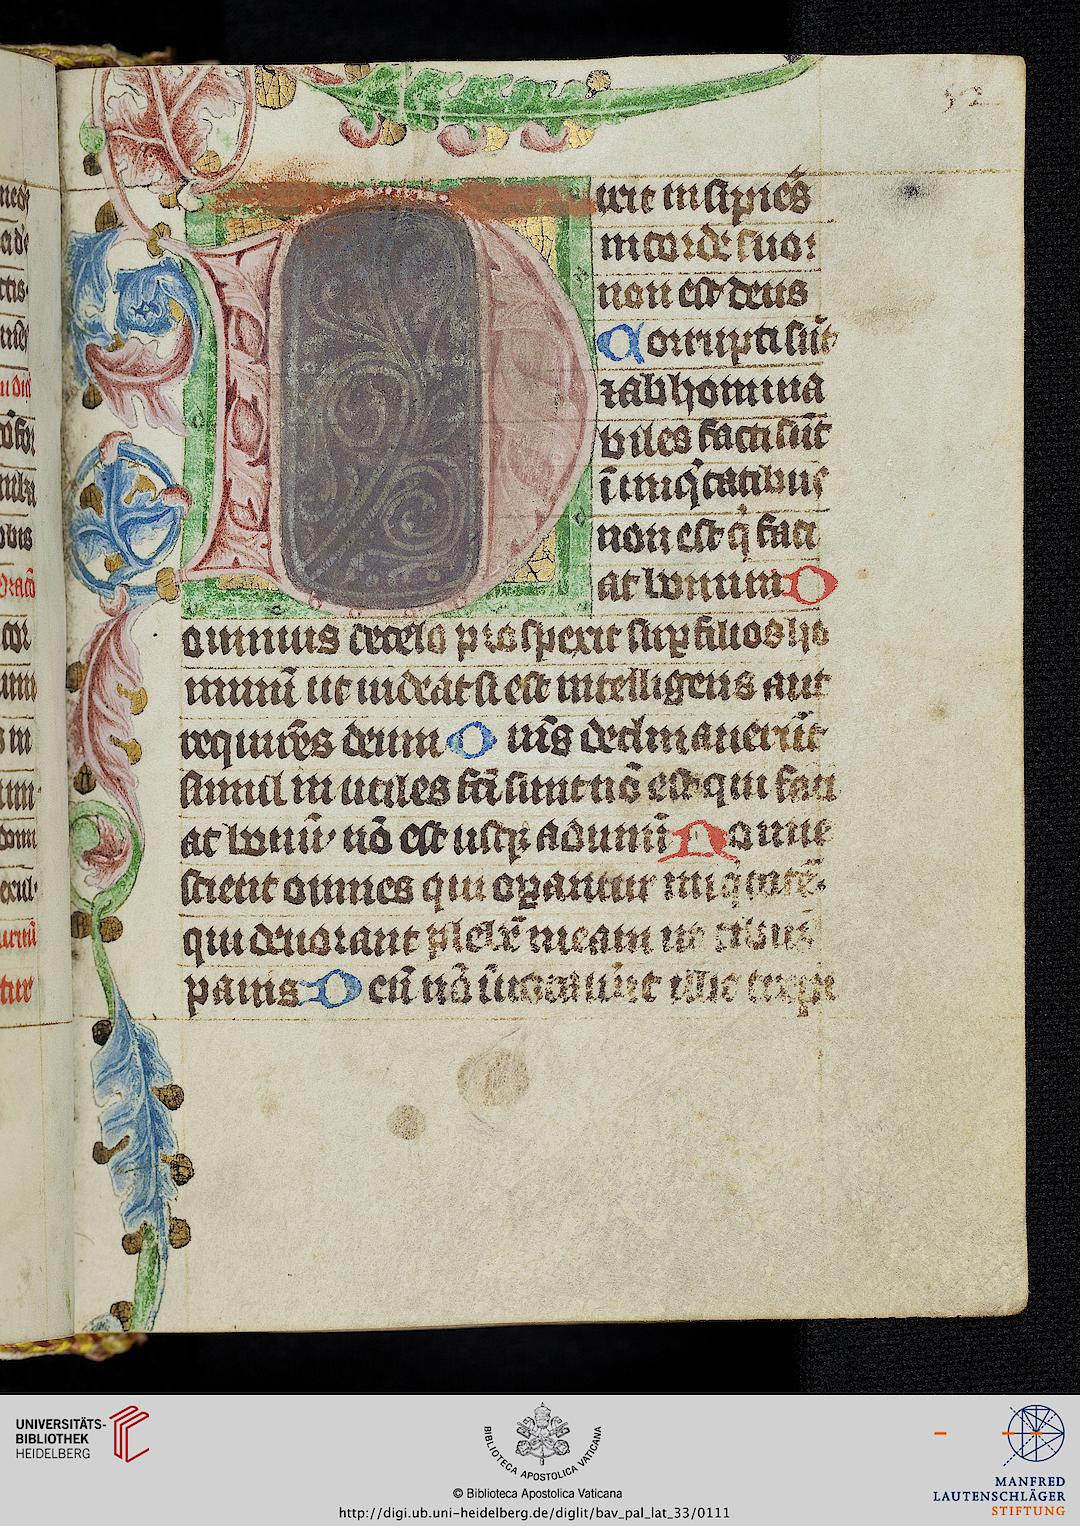 52
Dixit insipiēs
in corde suo:
non est deus
Corrupti sūt
⁊ abhomina
biles facti sūt
ī iniq̇tatibus
non est q̇ faci
at bonum D
ominus de celo prospexit suꝑ filios ho
minū ut uideat si est intelligens aut
requirēs deum O mīs declinauerūt
simul inutiles fcī sunt nō est qui faci
at bonū nō est usqꝫ ad unū N onne
scient omnes qui oꝑantur iniq̇tatē
qui deuorant plebē meam ut cibum
panis D eū nō īuocauer̄t illic trepi
UNIVERSITÄTS-
BIBLIOTHEK
HEIDELBERG
BIBLIOTECA APOSTOLICA VATICANA
© Biblioteca Apostolica Vaticana
http://digi.ub.uni-heidelberg.de/diglit/bav_pal_lat_33/0111
MANFRED
LAUTENSCHLÄGER
STIFTUNG